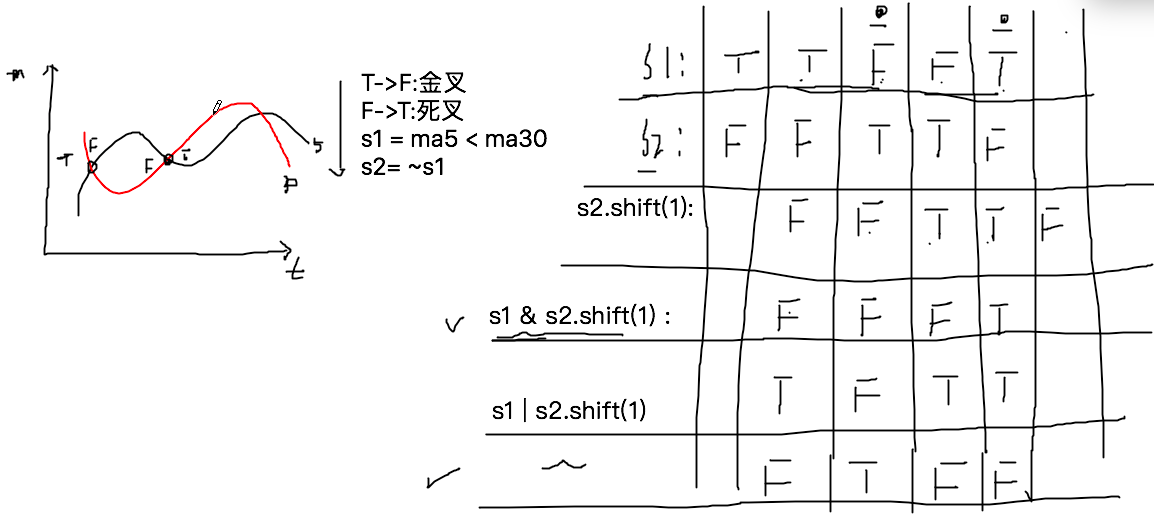 m
T F F T
5
P
t
T->F:金叉
F->T:死叉
s1 = ma5 < ma30
s2= ~s1
S1: T T F F T
S2: F F T T F
s2.shift(1): F F T T F
s1 & s2.shift(1) : F F F T
s1 | s2.shift(1) T F T T
~ F T F F